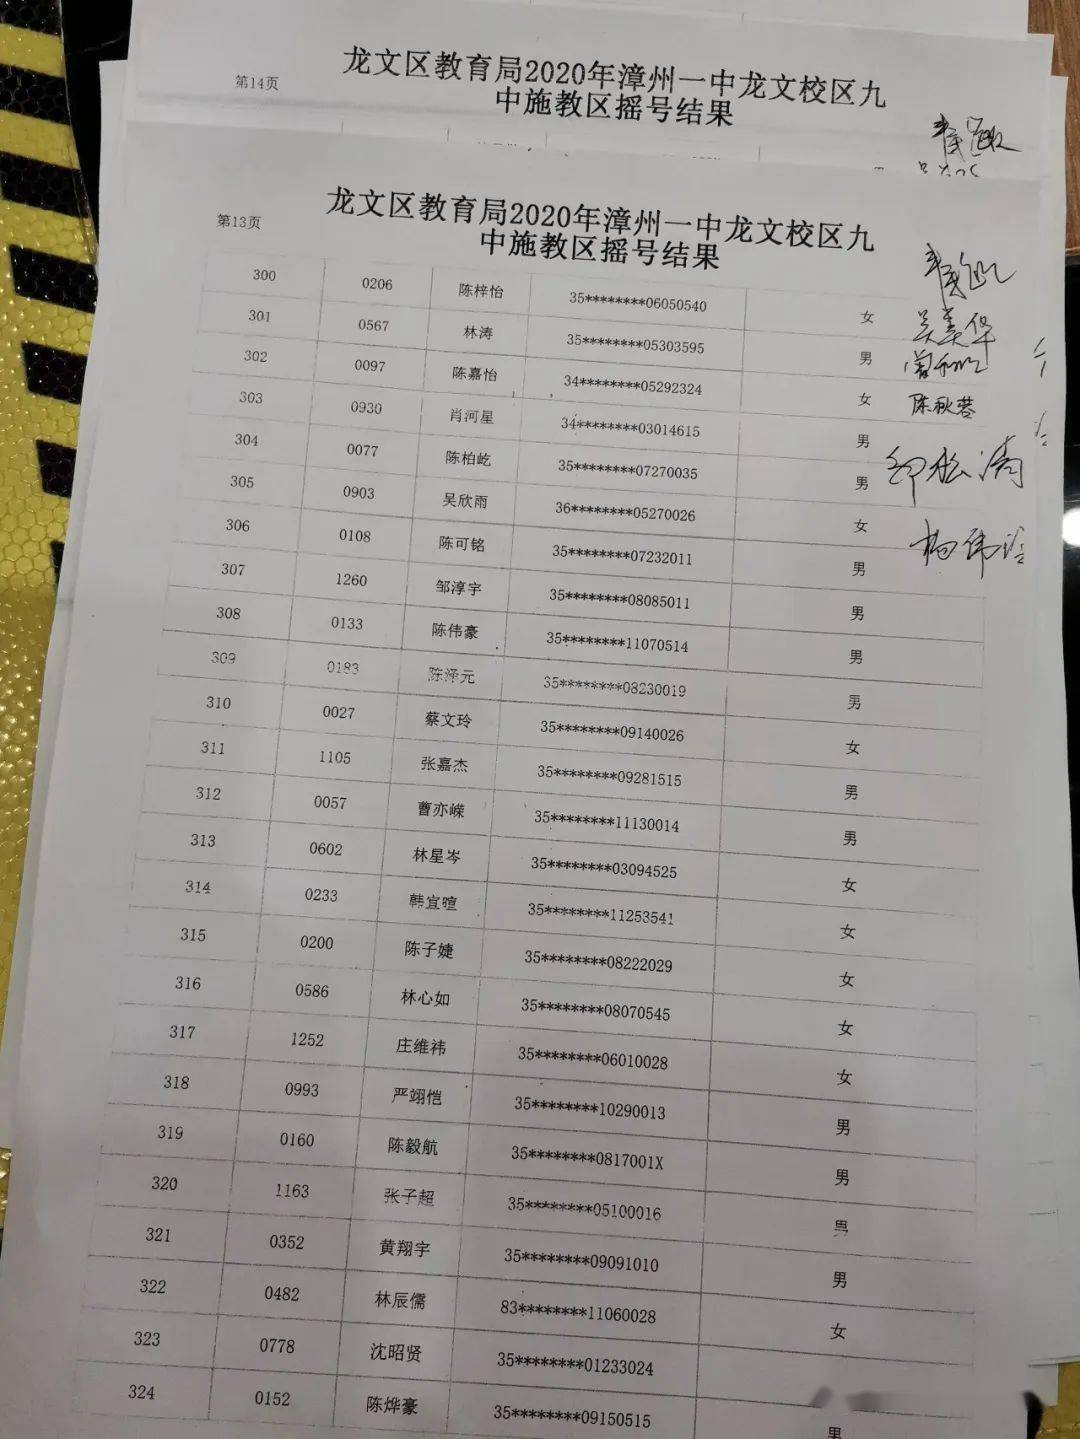 第14页
龙文区教育局2020年漳州一中龙文校区九
中施教区摇号结果
第13页
龙文区教育局2020年漳州一中龙文校区九
中施教区摇号结果
300 0206 陈梓怡 35********06050540 女
301 0567 林涛 35********05303595 男
302 0097 陈嘉怡 34********05292324 女
303 0930 肖河星 34********03014615 男
304 0077 陈柏屹 35********07270035 男
305 0903 吴欣雨 36********05270026 女
306 0108 陈可铭 35********07232011 男
307 1260 邹淳宇 35********08085011 男
308 0133 陈伟豪 35********11070514 男
309 0183 陈泽元 35********08230019 男
310 0027 蔡文玲 35********09140026 女
311 1105 张嘉杰 35********09281515 男
312 0057 曹亦嵘 35********11130014 男
313 0602 林星岑 35********03094525 女
314 0233 韩宜暄 35********11253541 女
315 0200 陈子婕 35********08222029 女
316 0586 林心如 35********08070545 女
317 1252 庄维祎 35********06010028 女
318 0993 严翊恺 35********10290013 男
319 0160 陈毅航 35********0817001X 男
320 1163 张子超 35********05100016 男
321 0352 黄翔宇 35********09091010 男
322 0482 林辰儒 83********11060028 女
323 0778 沈昭贤 35********01233024
324 0152 陈烨豪 35********09150515 男
吴美华
陈秋蓉